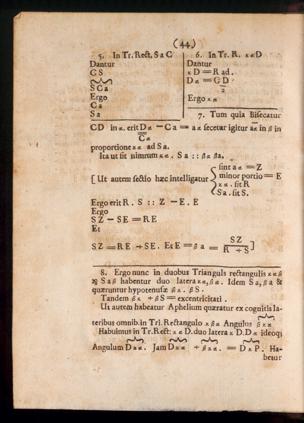 (44.)
5. In Tr. Rect. S a C
Dantur
C S
S C a
Ergo
C a
S a
6. In Tr. R. κ α D
Dantur
κ D = R ad.
D α = C D
2
Ergo κ α
7. Tum quia Bisecatur
CD in α. erit D α — C a = a α secetur igitur a α in β in
C α
proportione κ α ad S a.
Ita ut sit nimrum κ α. S a :: β α β a.
[ Ut autem sectio hæc intelligatur
sint a α = Z
minor portio = E
κ α. sit R
S a. sit S.
Ergo erit R. S :: Z - E. E
Ergo
S Z - SE = RE
Et
S Z = RE + SE. Et E = β a = SZ ]
R + S
8. Ergo nunc in duobus Triangulis rectangulis κ α β
& S a β habentur duo latera κ α, β α. Idem S a, β a &
quæruntur hypotenusæ β κ. β S.
Tandem β κ + β S = excentricitati.
Ut autem habeatur Aphelium quæratur ex cognitis la-
teribus omnib. in Tri. Rectangulo κ β α Angulus β κ α
Habuimus in Tr. Rect: κ α D. duo latera κ D. D α ideoq;
Angulum D κ α. Jam D κ α + β κ α. = D κ P. Ha-
betur